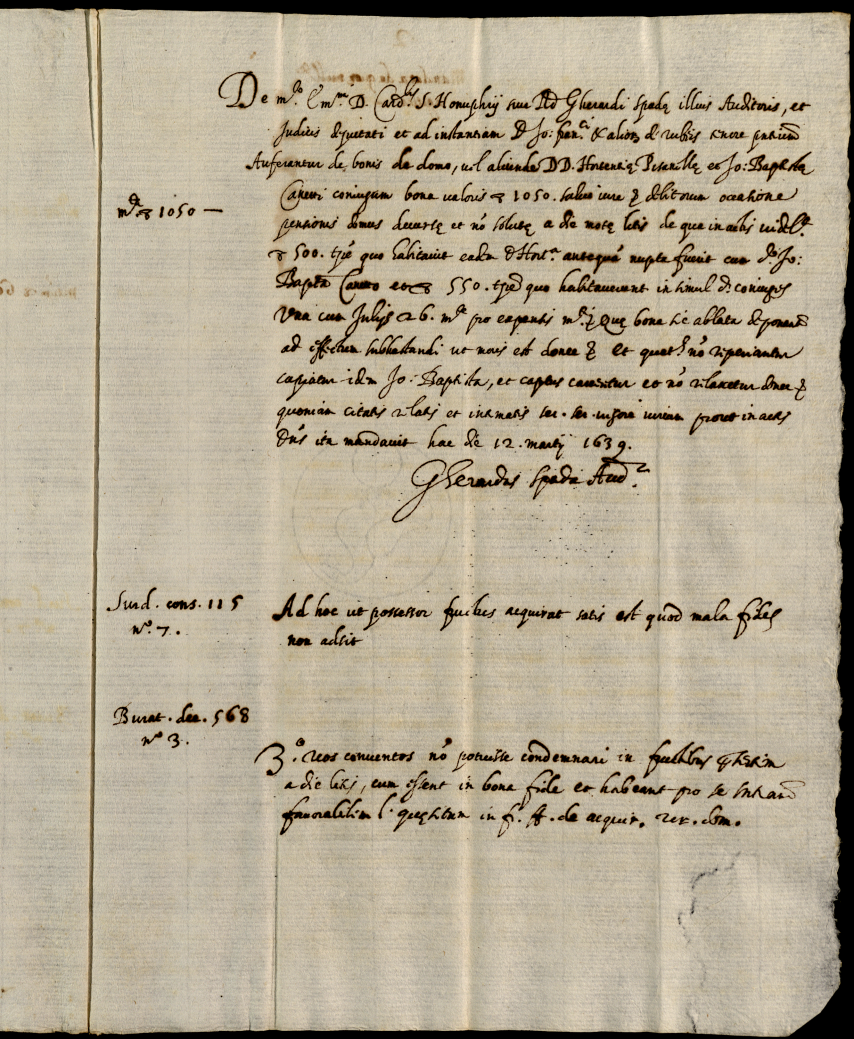 De m.to Em.mi D. Card.lis S. Honuphrij sive Ill.d Gherardi Spadę illius Auditoris, et
Judicis deputati et ad instantiam D Jo: fran.ci & alior. de rubeis tenore pntium
Auferantur de bonis de domo, vel aliunde DD. Hortentię et Jo: Baptistę
Caneri coniugum bona valoris 1050. salvo iure & debitorum occasione
m.ta 1050 —
pensionis domus decursę et nō solutę a die motę litis de qua in actis videl.t
500. tpē quo habitavit eadem D Hort.a antequā nupta fuerit cum d.o Jo:
Bapta Canero et 550. tpē quo habitaverunt insimul d.i coniuges
Una cum Julijs 26. m.ta pro expensis m.ti & Quę bona sic ablata deponant
ad effectum subhastandi ut moris est donec & et quat.s nō reperiantur
capiatur idem Jo: Baptista, et captus carceretur et nō relaxetur donec &
quoniam citatis relatis et intimatis ser. ser. iuriam prout in actis
Dn̄s ita mandavit hac die 12. martij 1639.
Gherardus Spada Aud.r
Surd. cons. 115
n.o 7.
Ad hoc ut possessor fructus acquirat satis est quod mala fides
non adsit
Burat. dec. 568
n.o 3.
3.o reos conventos nō potuisse condemnari in fructibus
a die litis, cum essent in bona fide et habeant pro se
favorabilem l. quęsitum in ff. de acquir. rer. dom.